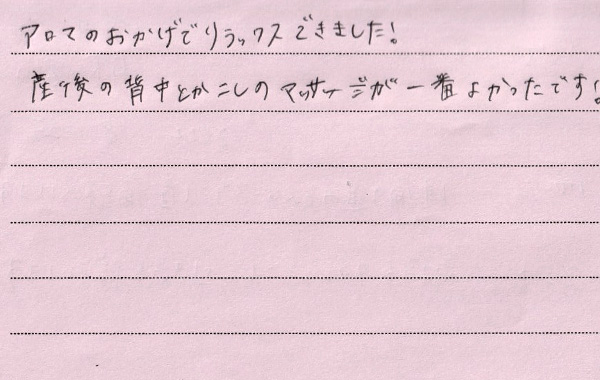 アロマのおかげでリラックスできました!
産後の背中とかこしのマッサージが一番よかったです!